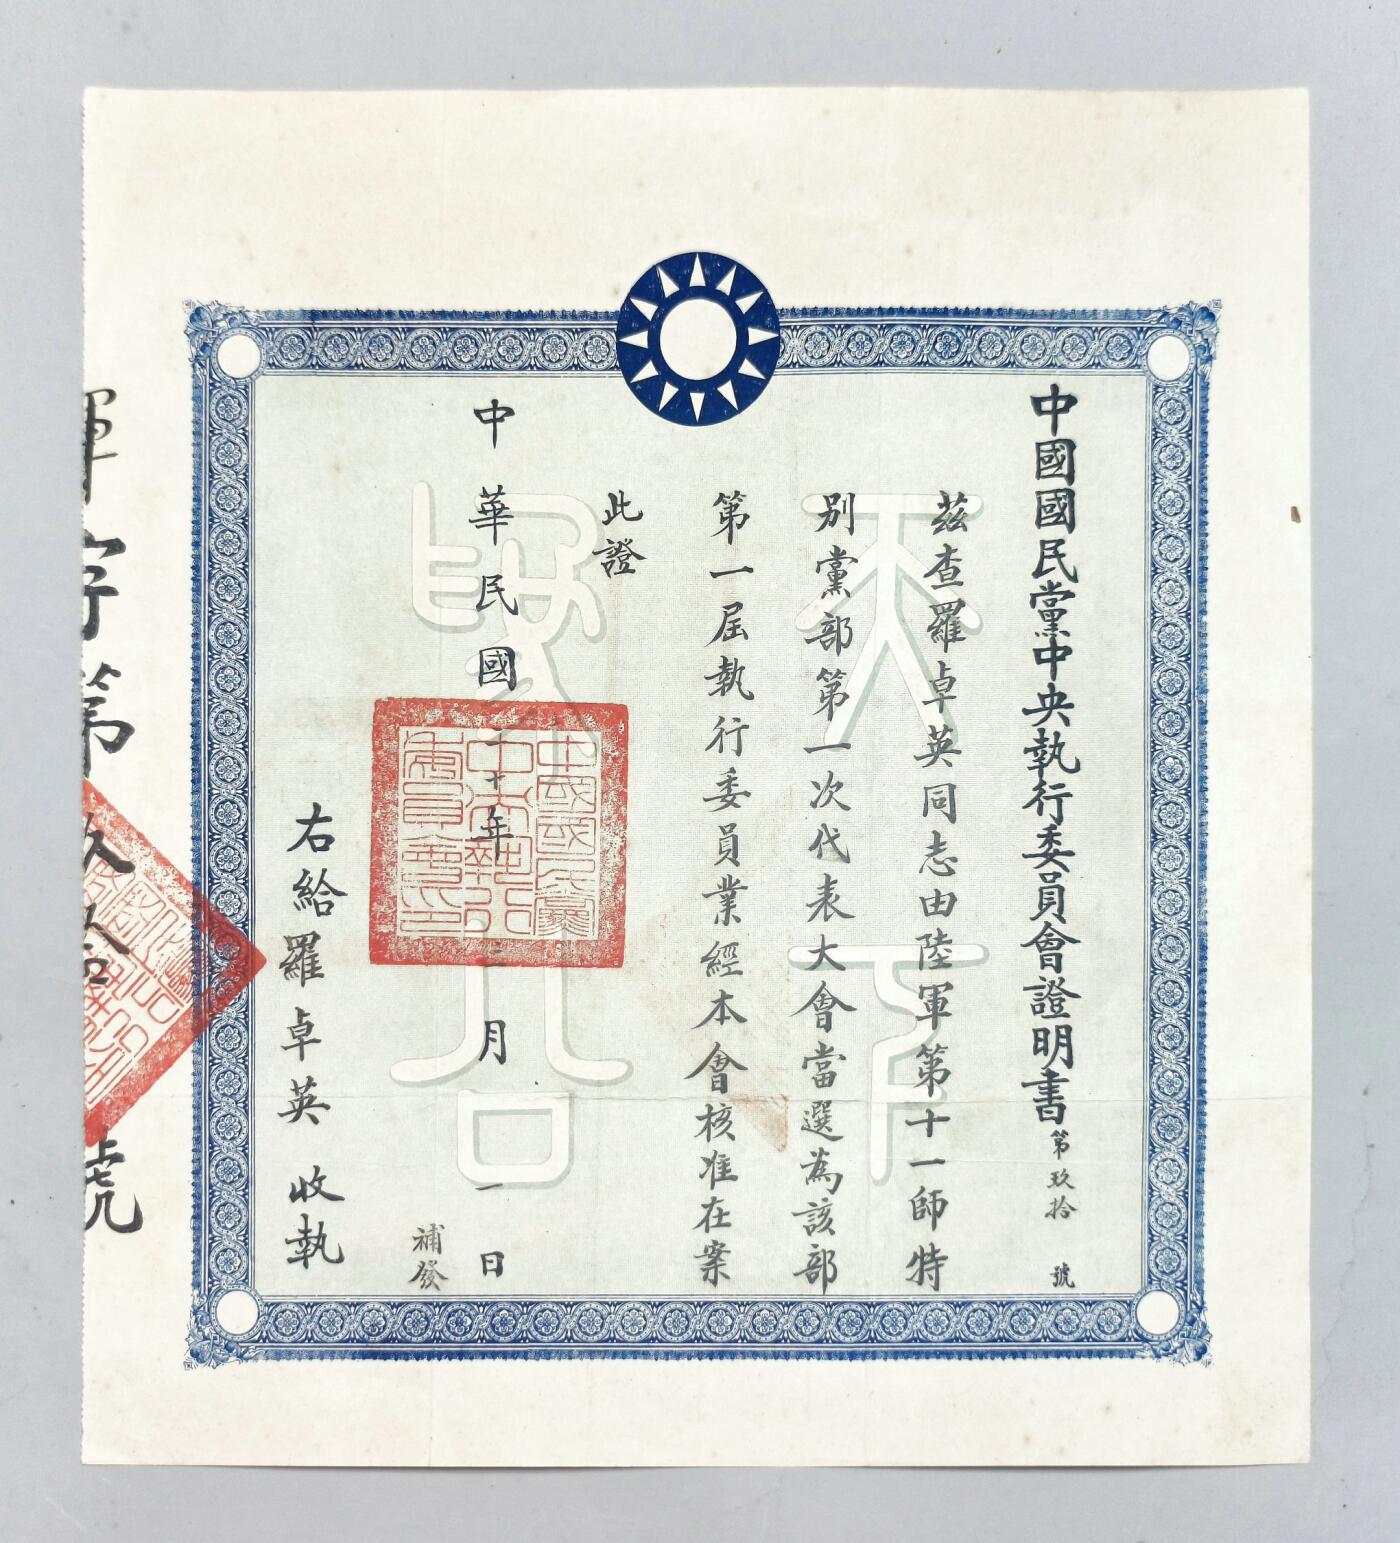 中國國民黨中央執行委員會證明書 第玖拾號
茲查羅卓英同志由陸軍第十一師特
別黨部第一次代表大會當選為該部
第一屆執行委員業經本會核准在案
此證
中華民國二十年三月一日
補發
右給羅卓英 收執
軍字第玖拾號
天下為公
中國國民黨中央執行委員會印